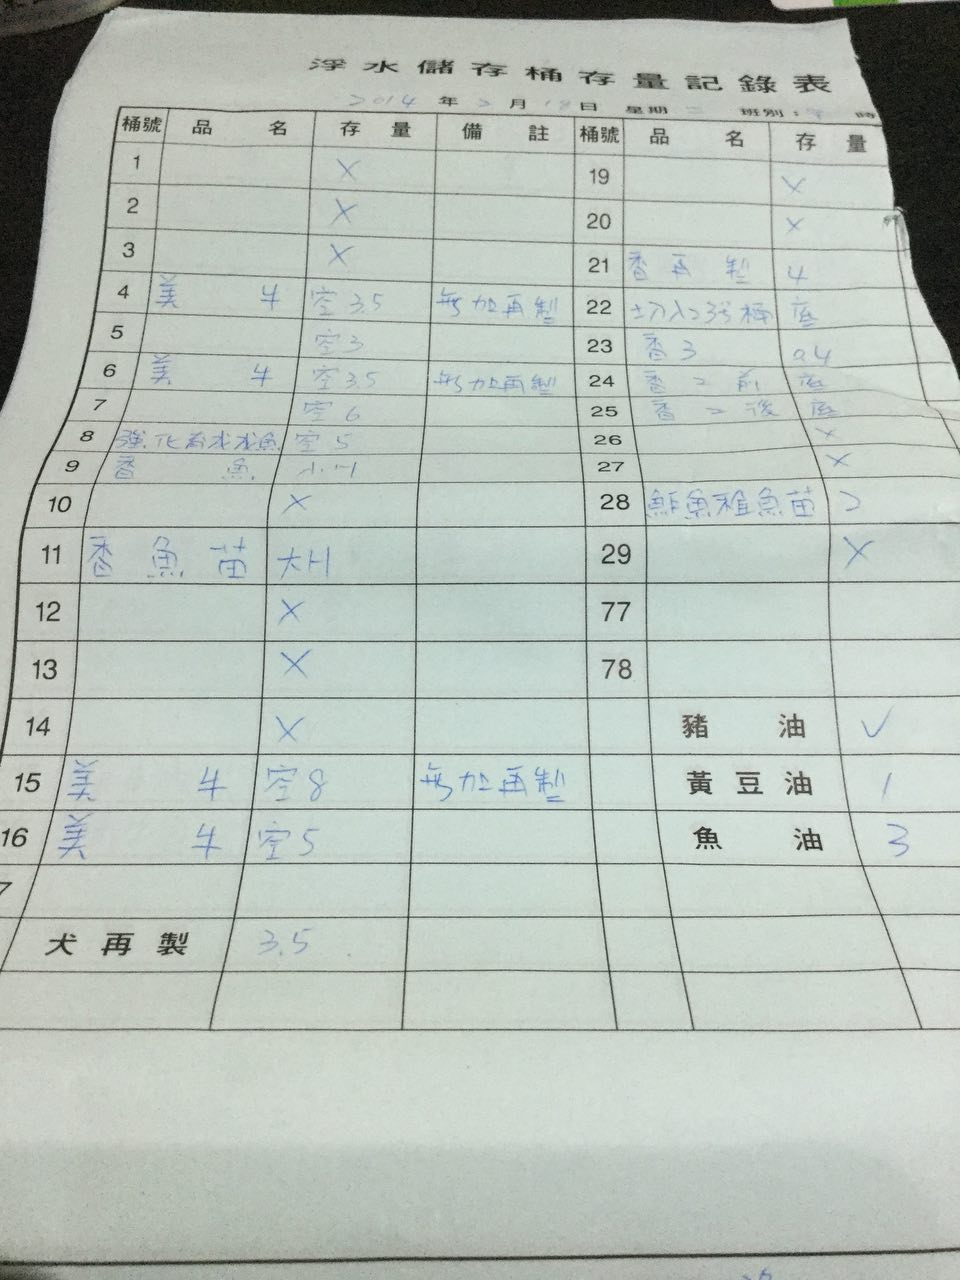 浮水儲存桶存量記錄表
2014 年 2 月 18 日 星期 二 班別： 時
桶號 品名 存量 備註 桶號 品名 存量
1 X 19 X
2 X 20 X
3 X 21 香再製 4
4 美牛 空3.5 無加再製 22 切入23號桶 底
5 空3 23 香3 0.4
6 美牛 空3.5 無加再製 24 香2前 底
7 空6 25 香2後 底
8 強化 魚 空5 26 X
9 香魚 小H 27 X
10 X 28 魚稚魚苗 2
11 香魚苗 大H 29 X
12 X 77
13 X 78
14 X 豬油 ✓
15 美牛 空8 無加再製 黃豆油 1
16 美牛 空5 魚油 3
7
犬再製 3.5